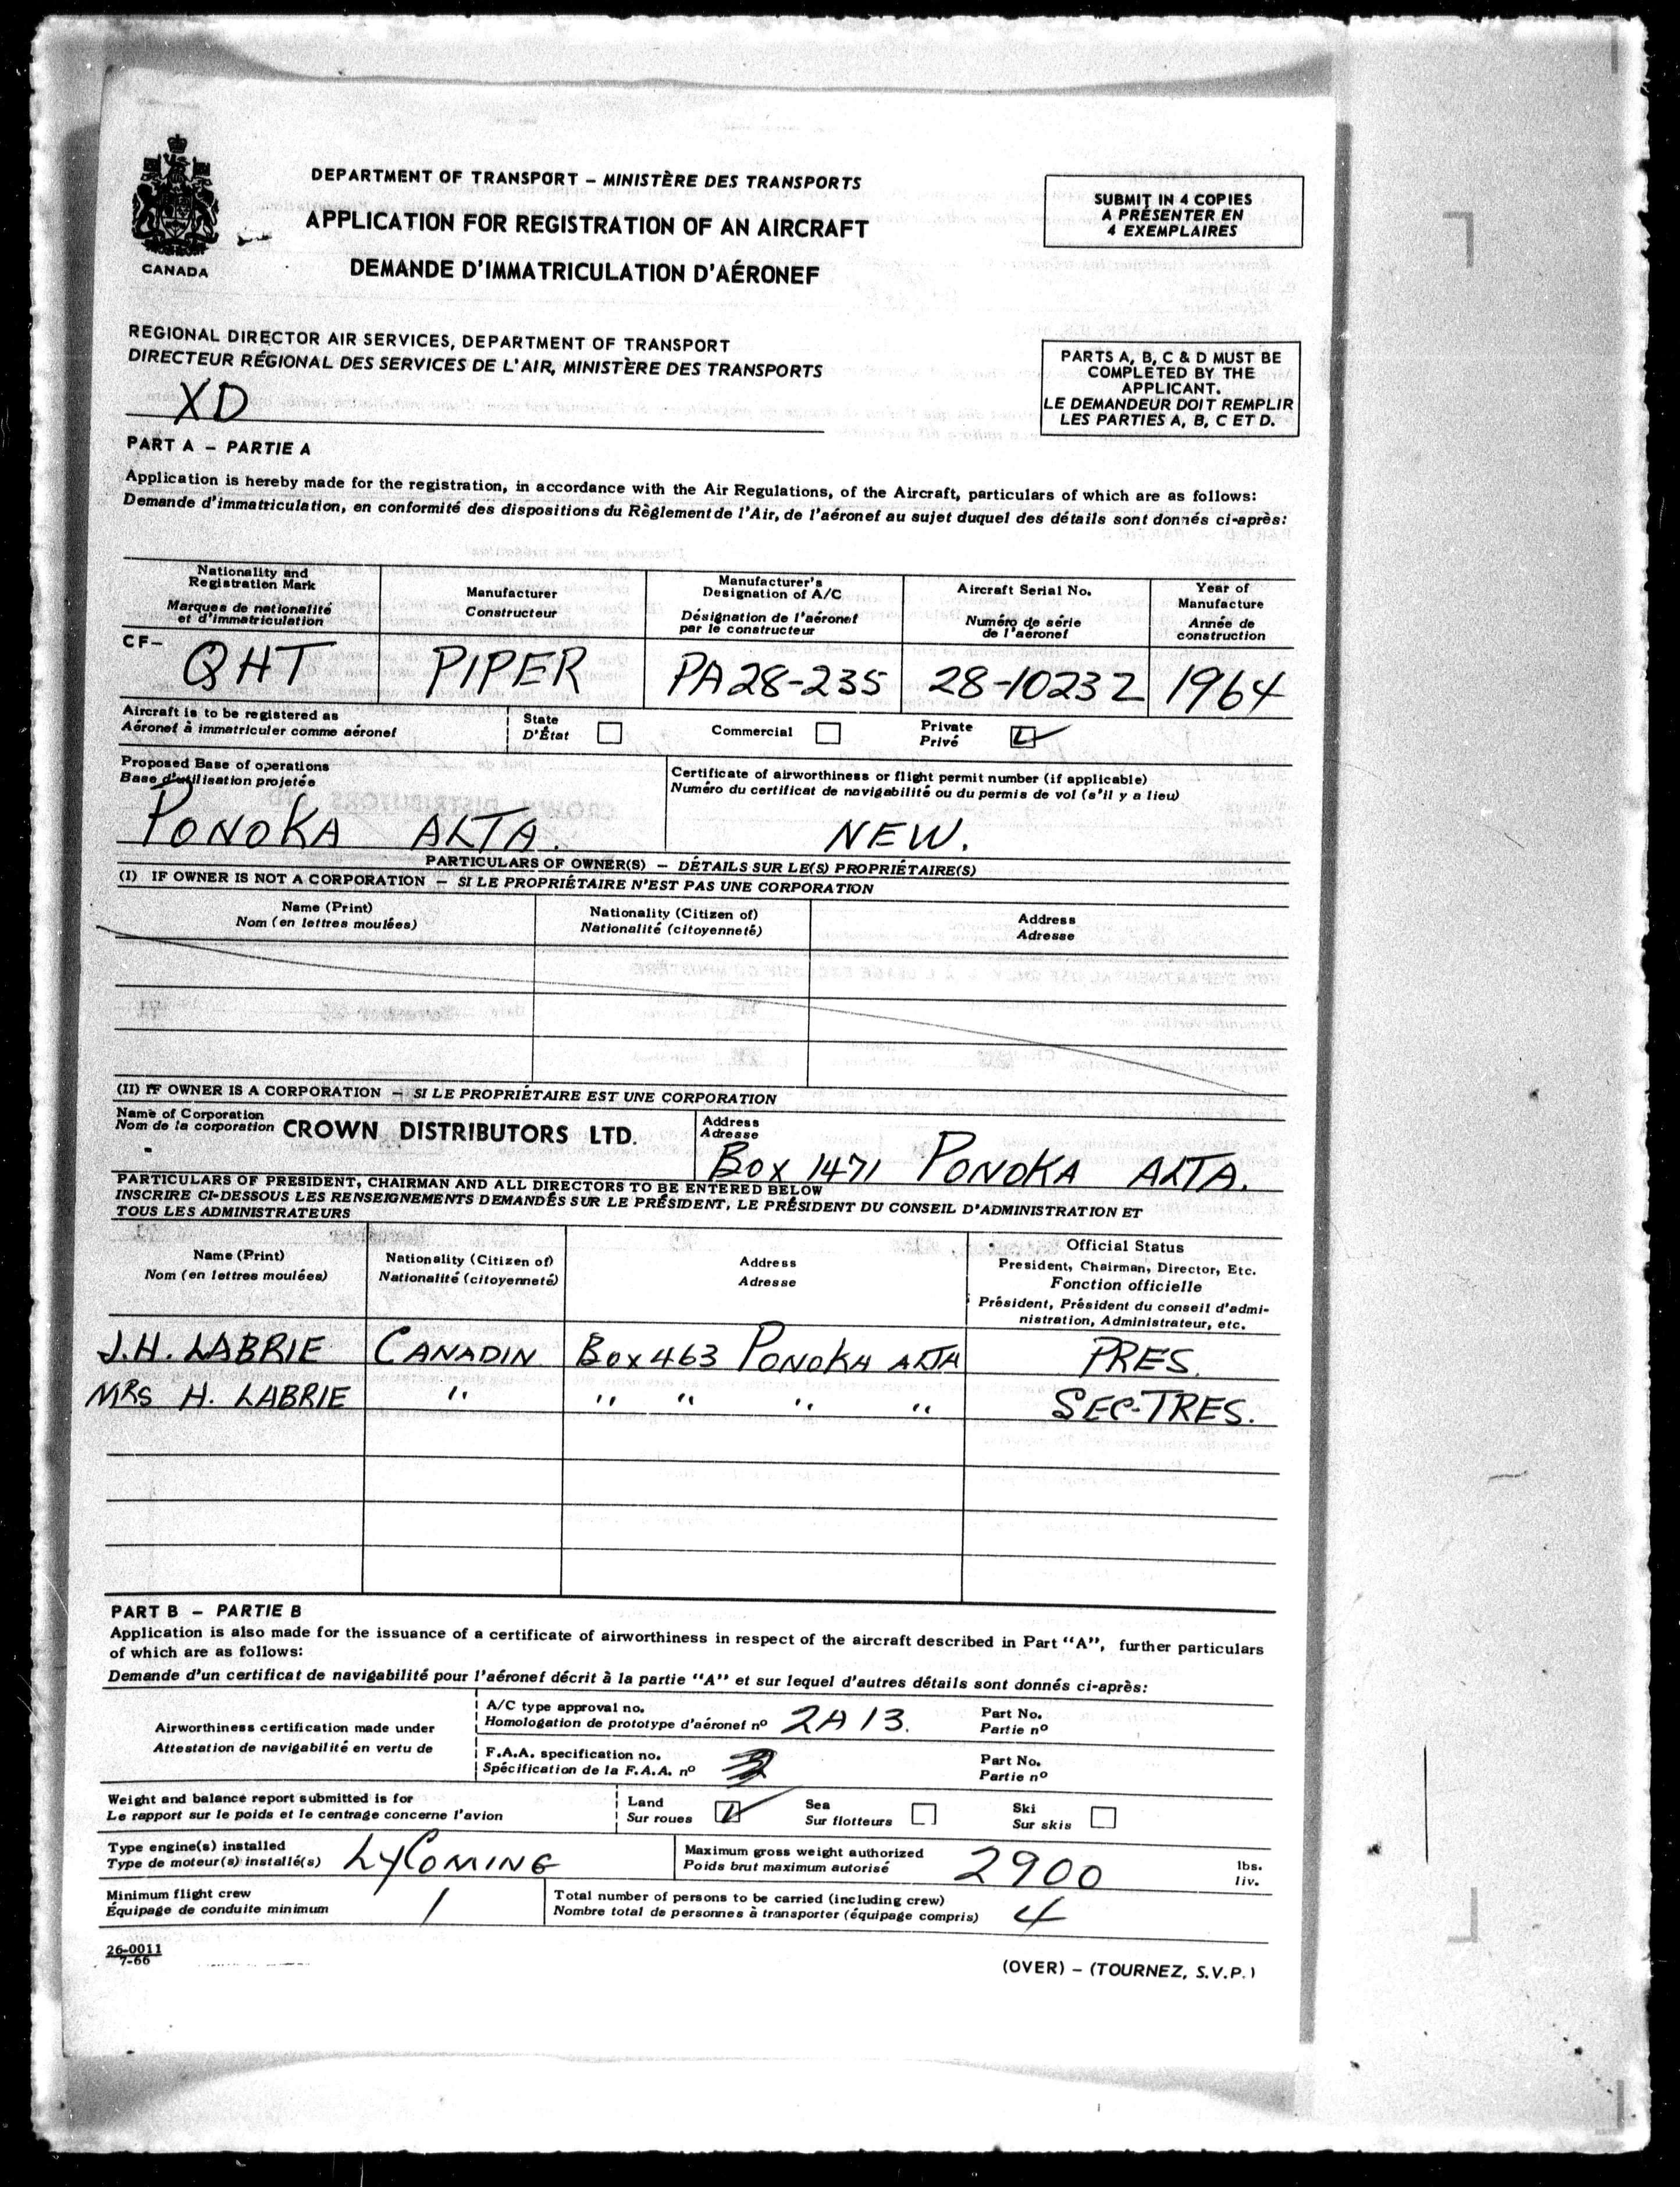 CANADA
DEPARTMENT OF TRANSPORT – MINISTÈRE DES TRANSPORTS
APPLICATION FOR REGISTRATION OF AN AIRCRAFT
DEMANDE D'IMMATRICULATION D'AÉRONEF
SUBMIT IN 4 COPIES
A PRÉSENTER EN
4 EXEMPLAIRES
REGIONAL DIRECTOR AIR SERVICES, DEPARTMENT OF TRANSPORT
DIRECTEUR RÉGIONAL DES SERVICES DE L'AIR, MINISTÈRE DES TRANSPORTS
XD
PARTS A, B, C & D MUST BE
COMPLETED BY THE
APPLICANT.
LE DEMANDEUR DOIT REMPLIR
LES PARTIES A, B, C ET D.
PART A – PARTIE A
Application is hereby made for the registration, in accordance with the Air Regulations, of the Aircraft, particulars of which are as follows:
Demande d'immatriculation, en conformité des dispositions du Règlement de l'Air, de l'aéronef au sujet duquel des détails sont donnés ci-après:
Nationality and
Registration Mark
Marques de nationalité
et d'immatriculation
Manufacturer
Constructeur
Manufacturer's
Designation of A/C
Désignation de l'aéronef
par le constructeur
Aircraft Serial No.
Numéro de série
de l'aéronef
Year of
Manufacture
Année de
construction
CF– QHT PIPER PA28-235 28-10232 1964
Aircraft is to be registered as
Aéronef à immatriculer comme aéronef
State
D'État
Commercial
Private
Privé
Proposed Base of operations
Base d'utilisation projetée
PONOKA ALTA.
Certificate of airworthiness or flight permit number (if applicable)
Numéro du certificat de navigabilité ou du permis de vol (s'il y a lieu)
NEW.
PARTICULARS OF OWNER(S) – DÉTAILS SUR LE(S) PROPRIÉTAIRE(S)
(I) IF OWNER IS NOT A CORPORATION – SI LE PROPRIÉTAIRE N'EST PAS UNE CORPORATION
Name (Print)
Nom (en lettres moulées)
Nationality (Citizen of)
Nationalité (citoyenneté)
Address
Adresse
(II) IF OWNER IS A CORPORATION – SI LE PROPRIÉTAIRE EST UNE CORPORATION
Name of Corporation
Nom de la corporation
CROWN DISTRIBUTORS LTD.
Address
Adresse
BOX 1471 PONOKA ALTA.
PARTICULARS OF PRESIDENT, CHAIRMAN AND ALL DIRECTORS TO BE ENTERED BELOW
INSCRIRE CI-DESSOUS LES RENSEIGNEMENTS DEMANDÉS SUR LE PRÉSIDENT, LE PRÉSIDENT DU CONSEIL D'ADMINISTRATION ET
TOUS LES ADMINISTRATEURS
Name (Print)
Nom (en lettres moulées)
Nationality (Citizen of)
Nationalité (citoyenneté)
Address
Adresse
Official Status
President, Chairman, Director, Etc.
Fonction officielle
Président, Président du conseil d'admi-
nistration, Administrateur, etc.
J.H. LABRIE CANADIN BOX 463 PONOKA ALTA PRES.
MRS H. LABRIE " " " " " SEC-TRES.
PART B – PARTIE B
Application is also made for the issuance of a certificate of airworthiness in respect of the aircraft described in Part "A", further particulars
of which are as follows:
Demande d'un certificat de navigabilité pour l'aéronef décrit à la partie "A" et sur lequel d'autres détails sont donnés ci-après:
Airworthiness certification made under
Attestation de navigabilité en vertu de
A/C type approval no.
Homologation de prototype d'aéronef nº 2A13.
Part No.
Partie nº
F.A.A. specification no.
Spécification de la F.A.A. nº
Part No.
Partie nº
Weight and balance report submitted is for
Le rapport sur le poids et le centrage concerne l'avion
Land
Sur roues
Sea
Sur flotteurs
Ski
Sur skis
Type engine(s) installed
Type de moteur(s) installé(s)
LYCOMING
Maximum gross weight authorized
Poids brut maximum autorisé
2900
lbs.
liv.
Minimum flight crew
Équipage de conduite minimum
1
Total number of persons to be carried (including crew)
Nombre total de personnes à transporter (équipage compris)
4
26-0011
7-66
(OVER) – (TOURNEZ, S.V.P.)